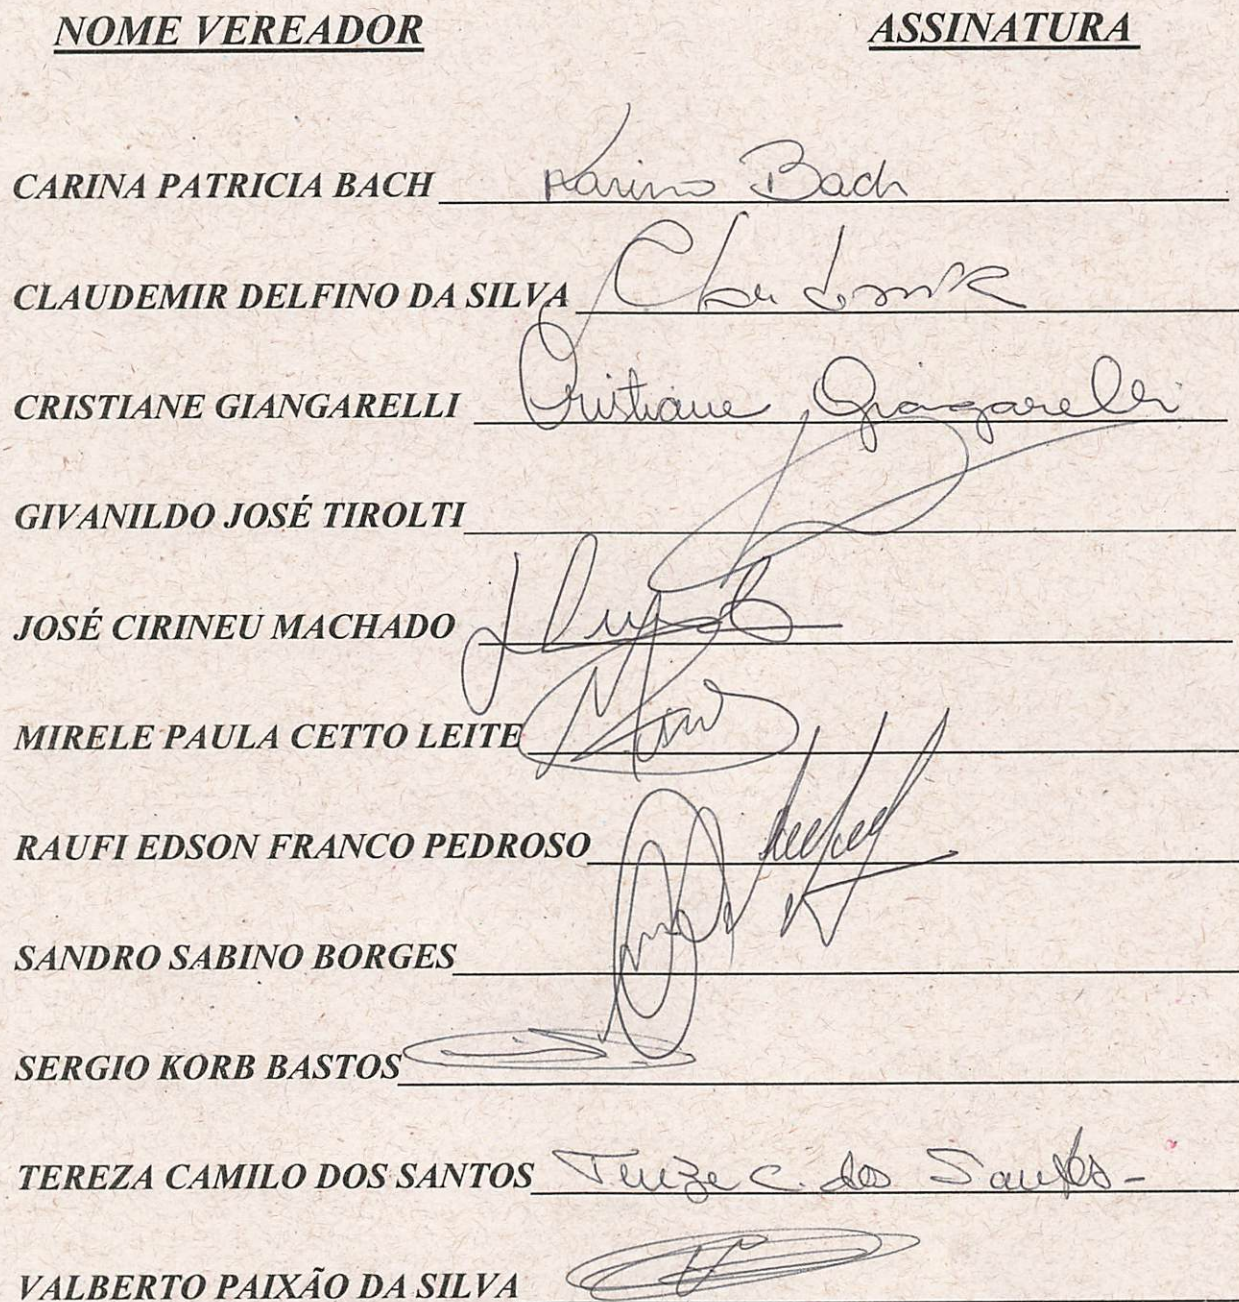 NOME VEREADOR ASSINATURA
CARINA PATRICIA BACH Karina Bach
CLAUDEMIR DELFINO DA SILVA Claudemir
CRISTIANE GIANGARELLI Cristiane Giangarelli
GIVANILDO JOSÉ TIROLTI
JOSÉ CIRINEU MACHADO
MIRELE PAULA CETTO LEITE
RAUFI EDSON FRANCO PEDROSO
SANDRO SABINO BORGES
SERGIO KORB BASTOS
TEREZA CAMILO DOS SANTOS Tereza C. dos Santos -
VALBERTO PAIXÃO DA SILVA